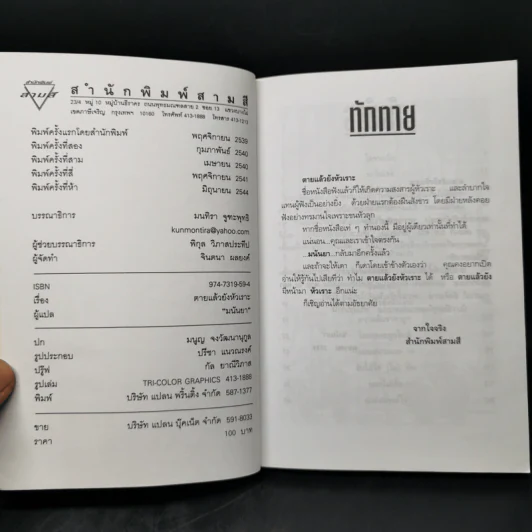 สำนักพิมพ์
สามสี
สำนักพิมพ์สามสี
23/4 หมู่ 10 หมู่บ้านธีราคร ถนนพุทธมณฑลสาย 2 ซอย 13 แขวงบางไผ่
เขตภาษีเจริญ กรุงเทพฯ 10160 โทรศัพท์ 413-1888 โทรสาร 413-1213
พิมพ์ครั้งแรกโดยสำนักพิมพ์ พฤศจิกายน 2539
พิมพ์ครั้งที่สอง กุมภาพันธ์ 2540
พิมพ์ครั้งที่สาม เมษายน 2540
พิมพ์ครั้งที่สี่ พฤศจิกายน 2541
พิมพ์ครั้งที่ห้า มิถุนายน 2544
บรรณาธิการ มนทิรา จูฑะพุทธิ
kunmontira@yahoo.com
ผู้ช่วยบรรณาธิการ พิกุล วิภาสประทีป
ผู้จัดทำ จินตนา มลยงค์
ISBN 974-7319-59-4
เรื่อง ตายแล้วยังหัวเราะ
ผู้แปล "มนันยา"
ปก มนูญ จงวัฒนานุกูล
รูปประกอบ ปรีชา แนวณรงค์
ปรู๊ฟ กัล ยาณีวิภาส
รูปเล่ม TRI-COLOR GRAPHICS 413-1888
พิมพ์ บริษัท แปลน พริ้นติ้ง จำกัด 587-1377
ขาย บริษัท แปลน บุ๊คเน็ต จำกัด 591-8033
ราคา 100 บาท
ทักทาย
ตายแล้วยังหัวเราะ
ชื่อหนังสือฟังแล้วก็ให้เกิดความสงสารผู้หัวเราะ และลำบากใจ
แทนผู้ฟังเป็นอย่างยิ่ง ด้วยฝ่ายแรกต้องฝืนสังขาร โดยมีฝ่ายหลังคอย
ฟังอย่างทรมานใจเพราะขนหัวลุก
หากชื่อหนังสือเท่ ๆ ทำนองนี้ มีอยู่ผู้เดียวเท่านั้นที่ทำได้
แน่นอน...คุณและเราเข้าใจตรงกัน
...มนันยา...กลับมาอีกครั้งแล้ว
และถ้าจะให้เดา ก็เดาโดยเข้าข้างตัวเองว่า คุณคงอยากเปิด
อ่านให้รู้กันไปเสียทีว่า ทำไม ตายแล้วยังหัวเราะ ได้ หรือ ตายแล้วยัง
มีหน้ามา หัวเราะ อีกแน่ะ
ก็เชิญอ่านได้ตามอัธยาศัย
จากใจจริง
สำนักพิมพ์สามสี